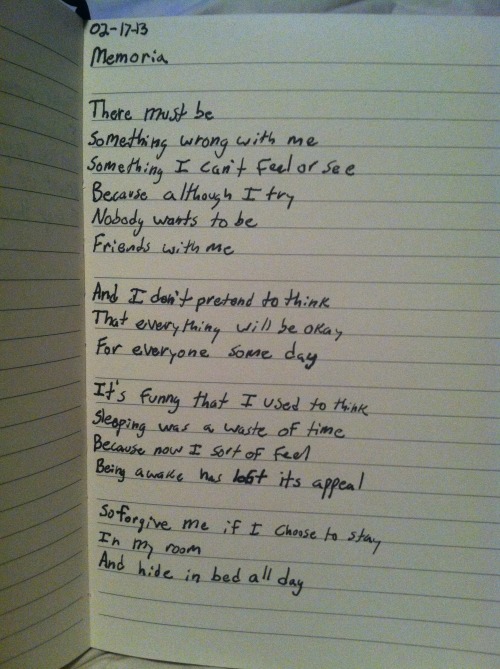 02-17-13
Memoria
There must be
Something wrong with me
Something I can't feel or see
Because although I try
Nobody wants to be
Friends with me
And I don't pretend to think
That everything will be okay
For everyone some day
It's funny that I used to think
Sleeping was a waste of time
Because now I sort of feel
Being awake has lost its appeal
So forgive me if I choose to stay
In my room
And hide in bed all day